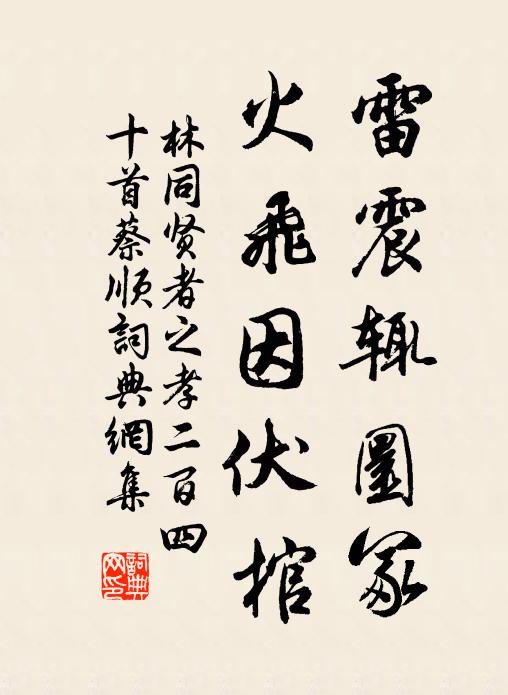 雷震辄圜冢
火飛因伏棺
林同贤者之孝二百四
十首蔡順詞典網集
詞典网印